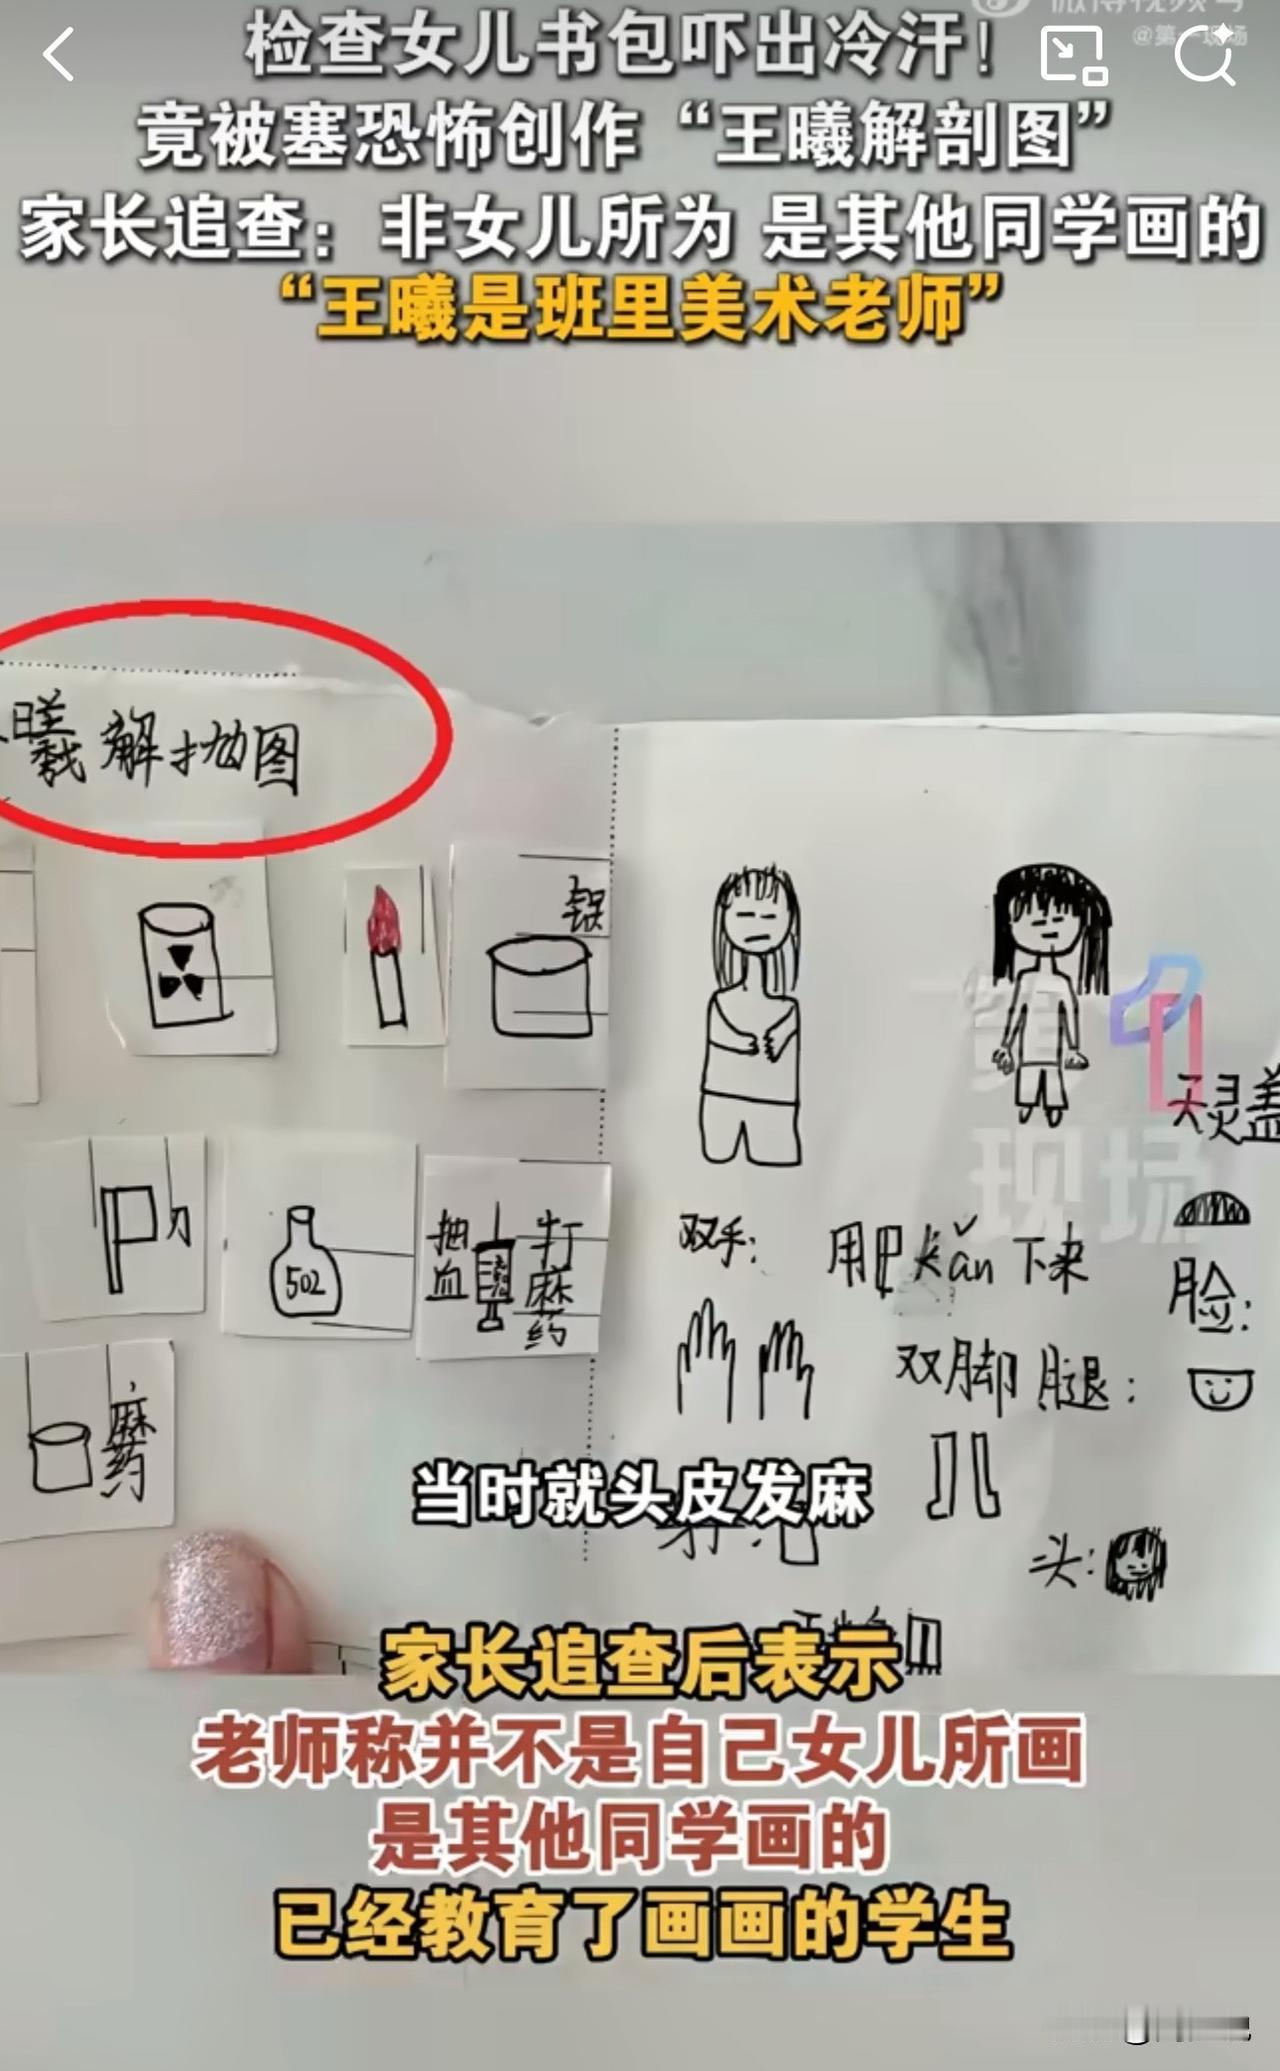 @第一现场
检查女儿书包吓出冷汗！
竟被塞恐怖创作“王曦解剖图”
家长追查：非女儿所为 是其他同学画的
“王曦是班里美术老师”
曦解抛图
锅
刀
502
抽血
打麻药
麻药
双手：
用 kǎn下来
双脚腿：
天灵盖
脸：
头：
现场
当时就头皮发麻
家长追查后表示
老师称并不是自己女儿所画
是其他同学画的
已经教育了画画的学生